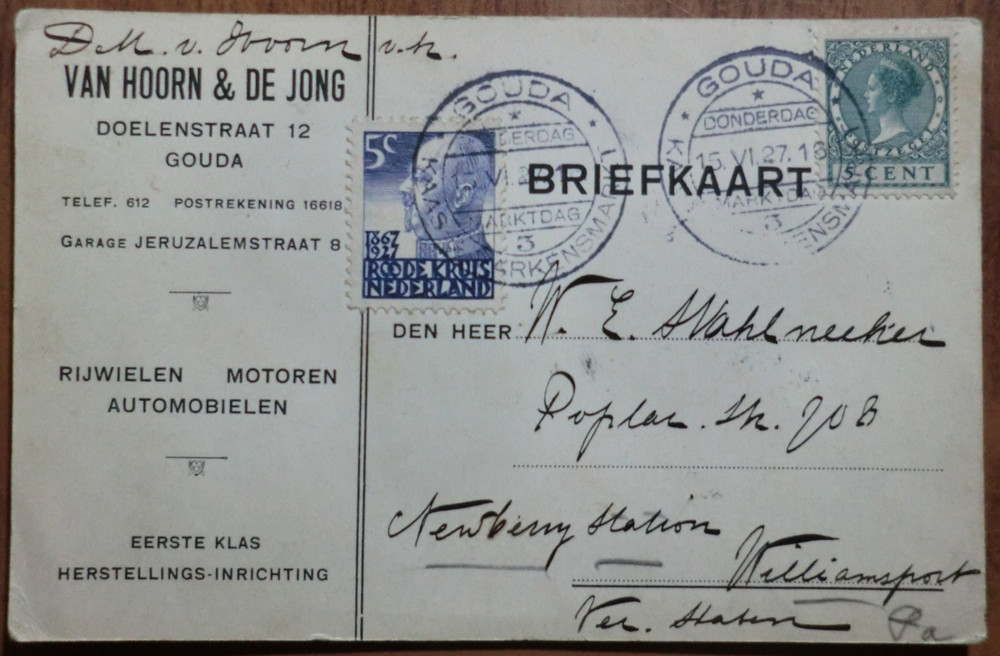 D.M. v. Hoorn v.h.
VAN HOORN & DE JONG
DOELENSTRAAT 12
GOUDA
TELEF. 612 POSTREKENING 16618
GARAGE JERUZALEMSTRAAT 8
RIJWIELEN MOTOREN
AUTOMOBIELEN
EERSTE KLAS
HERSTELLINGS-INRICHTING
5C
1867
1927
ROODE KRUIS
NEDERLAND
GOUDA
DERDAG
VI.2
MARKTDAG
3
KAAS VARKENSMA
GOUDA
DONDERDAG
15.VI.27.16
MARKTDAG
3
NEDERLAND
POSTZEGEL
5 CENT
BRIEFKAART
DEN HEER W. E. Stahlnecker
Poplar. St. 708
Newberry Station
Williamsport
Ver. Staten Pa